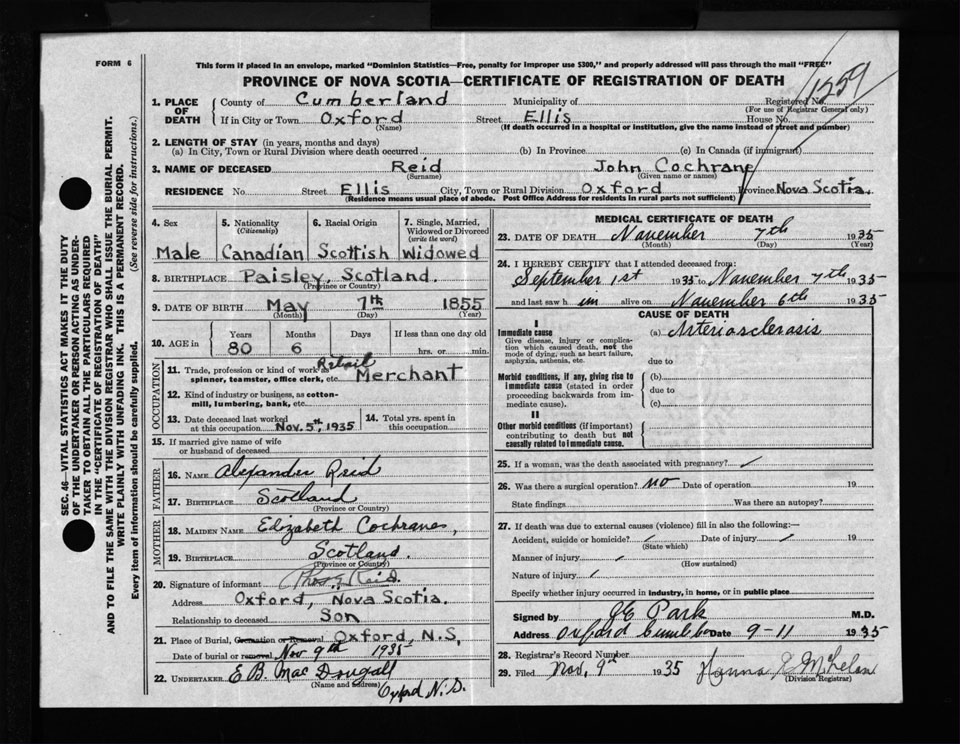 FORM 6
This form if placed in an envelope, marked "Dominion Statistics—Free, penalty for improper use $300," and properly addressed will pass through the mail "FREE"
PROVINCE OF NOVA SCOTIA—CERTIFICATE OF REGISTRATION OF DEATH
1259
1. PLACE OF DEATH
County of Cumberland Municipality of Registered No.
(For use of Registrar General only)
If in City or Town Oxford Street Ellis House No.
(Name) (If death occurred in a hospital or institution, give the name instead of street and number)
2. LENGTH OF STAY (in years, months and days)
(a) In City, Town or Rural Division where death occurred (b) In Province (c) In Canada (if immigrant)
3. NAME OF DECEASED Reid John Cochrane
(Surname) (Given name or names)
RESIDENCE No. Street Ellis City, Town or Rural Division Oxford Province Nova Scotia.
(Residence means usual place of abode. Post Office Address for residents in rural parts not sufficient)
SEC. 46—VITAL STATISTICS ACT MAKES IT THE DUTY
OF THE UNDERTAKER OR PERSON ACTING AS UNDER-
TAKER TO OBTAIN ALL THE PARTICULARS REQUIRED
IN THE "CERTIFICATE OF REGISTRATION OF DEATH"
AND TO FILE THE SAME WITH THE DIVISION REGISTRAR WHO SHALL ISSUE THE BURIAL PERMIT.
WRITE PLAINLY WITH UNFADING INK. THIS IS A PERMANENT RECORD.
Every item of information should be carefully supplied. (See reverse side for instructions.)
4. Sex
Male
5. Nationality
(Citizenship)
Canadian
6. Racial Origin
Scottish
7. Single, Married,
Widowed or Divorced
(write the word)
Widowed
8. BIRTHPLACE Paisley, Scotland.
(Province or Country)
9. DATE OF BIRTH May 7th 1855
(Month) (Day) (Year)
10. AGE in
Years Months Days If less than one day old
80 6 hrs. or min.
OCCUPATION
11. Trade, profession or kind of work as
spinner, teamster, office clerk, etc. Retail Merchant
12. Kind of industry or business, as cotton-
mill, lumbering, bank, etc.
13. Date deceased last worked
at this occupation Nov. 5th, 1935
14. Total yrs. spent in
this occupation
15. If married give name of wife
or husband of deceased
FATHER
16. NAME Alexander Reid
17. BIRTHPLACE Scotland
(Province or Country)
MOTHER
18. MAIDEN NAME Elizabeth Cochrane,
19. BIRTHPLACE Scotland.
(Province or Country)
20. Signature of informant Reid.
Address Oxford, Nova Scotia.
Relationship to deceased Son
21. Place of Burial, Cremation or Removal Oxford, N.S,
Date of burial or removal Nov 9th 1935
22. UNDERTAKER E B. MacDougall
(Name and address) Oxford N.S.
MEDICAL CERTIFICATE OF DEATH
23. DATE OF DEATH November 7th 1935
(Month) (Day) (Year)
24. I HEREBY CERTIFY that I attended deceased from:
September 1st 1935 to November 7th 1935
and last saw him alive on November 6th 1935
CAUSE OF DEATH
I
Immediate cause
Give disease, injury or complica-
tion which caused death, not the
mode of dying, such as heart failure,
asphyxia, asthenia, etc.
(a) Arteriosclerasis
due to
Morbid conditions, if any, giving rise to
immediate cause (stated in order
proceeding backwards from im-
mediate cause).
(b)
due to
(c)
II
Other morbid conditions (if important)
contributing to death but not
causally related to immediate cause.
25. If a woman, was the death associated with pregnancy? /
26. Was there a surgical operation? no Date of operation 19
State findings Was there an autopsy?
27. If death was due to external causes (violence) fill in also the following:—
Accident, suicide or homicide? / Date of injury / 19
(State which)
Manner of injury /
(How sustained)
Nature of injury /
Specify whether injury occurred in industry, in home, or in public place
Signed by Park M.D.
Address Oxford Date 9-11 1935
28. Registrar's Record Number
29. Filed Nov. 9th 1935
(Division Registrar)